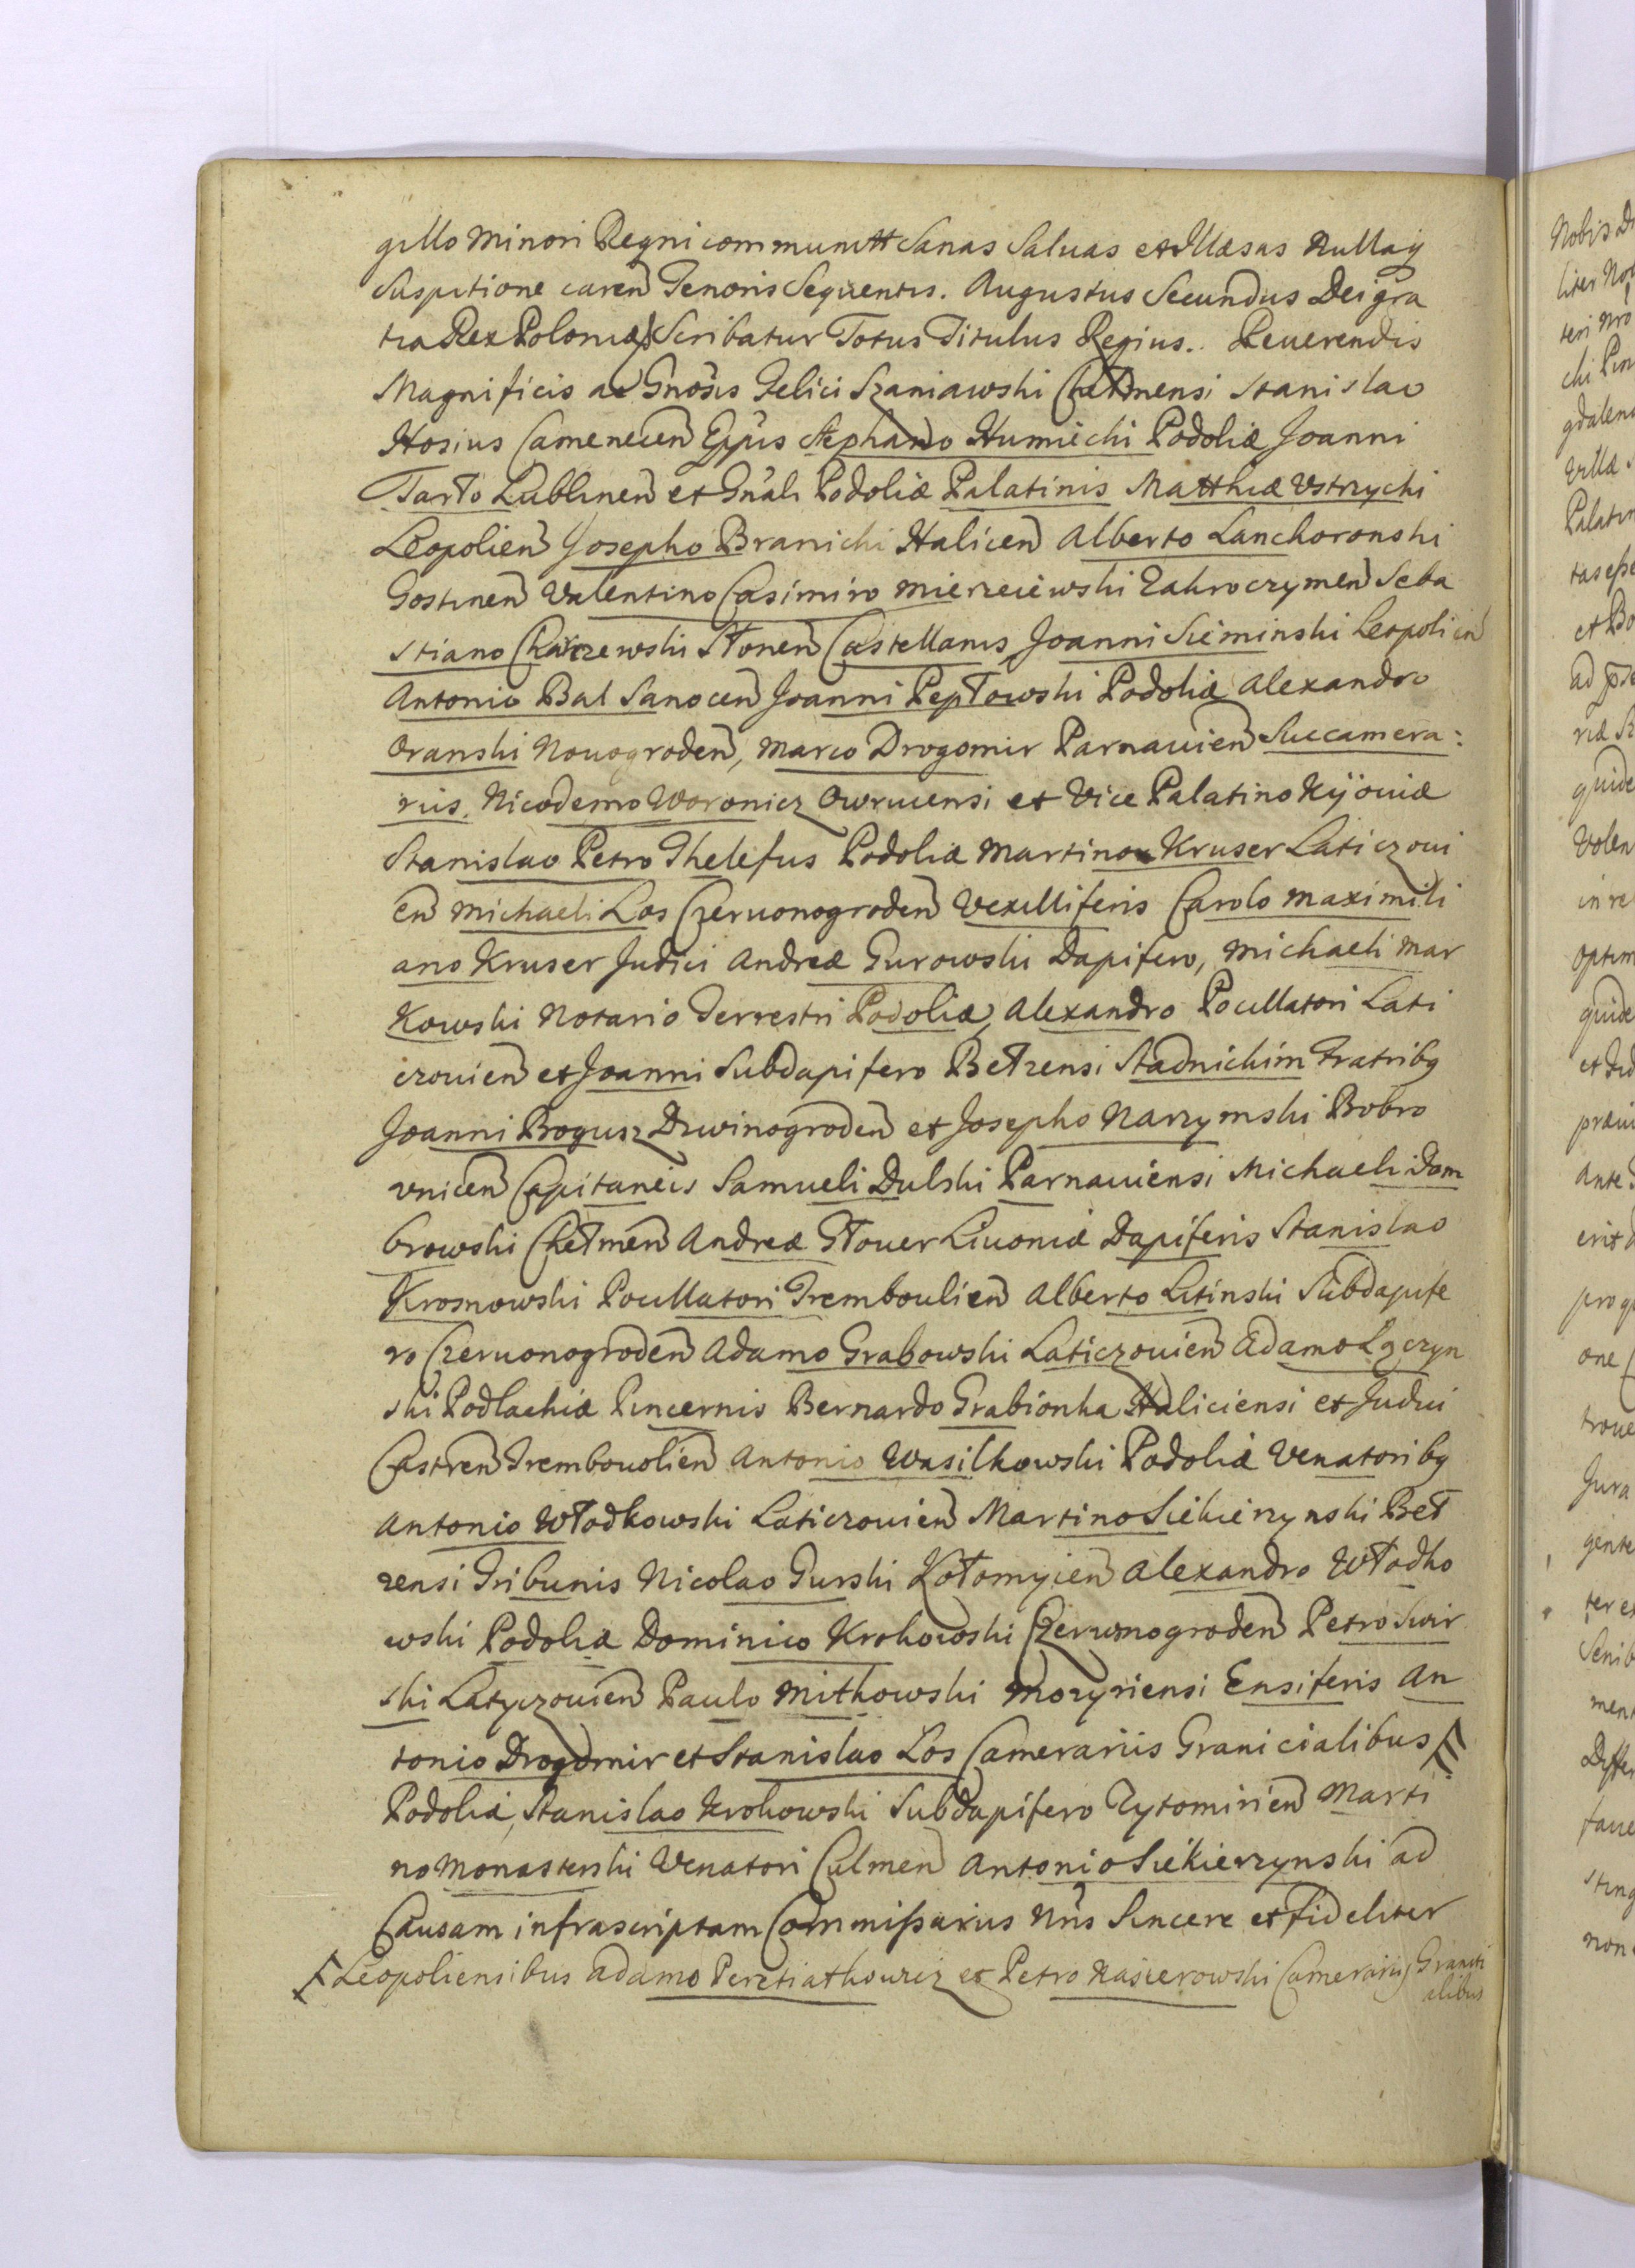 gillo Minori Regni communitt Sanas Saluas et Illæsas Nullaq
Suspitione caren Tenoris Sequentis. Augustus Secundus Dei gra
tia Rex Poloniæ Scribatur Totus Titulus Regius. Reuerendis
Magnificis ac Gnosis Felici Szaniawski Chełmensi Stanislao
Hosius Camenecen Eppis Stephano Humiecki Podoliæ Joanni
Tarło Lublinen et Gnali Podoliæ Palatinis Matthiæ Vstrzycki
Leopolien Josepho Branicki Halicen Alberto Lanckoronski
Gostinen Valentino Casimiro Mierzeiewski Zakroczymen Seba
stiano Chaczewski Słonen Castellanis Joanni Sieminski Leopolien
Antonio Bal Sanocen Joanni Pepłowski Podoliæ Alexandro
Oranski Nouogroden, Marco Drogomir Parnauien Succamera:
riis, Nicodemo Woronicz Owruensi et Vice Palatino Kijouiæ
Stanislao Petro Thelefus Podoliæ Martino Kruser Laticzoui
en Michaeli Los Czeruonogroden Vexilliferis Carolo Maximili
ano Kruser Judici Andreæ Gurowski Dapifero, Michaeli Mar
Kowski Notario Terrestri Podoliæ, Alexandro Pocillatori Lati
czouien et Joanni Subdapifero Bełzensi Stadnickim Fratribq
Joanni Bogusz Dzwinogroden et Josepho Narzymski Bobro
vnicen Capitaneis Samueli Dulski Parnauiensi Michaeli Dom
browski Chełmen Andreæ Głouer Liuoniæ Dapiferis Stanislao
Krosnowski Pocillatori Tremboulien Alberto Litinski Subdapife
ro Czeruonogroden Adamo Grabowski Laticzouien Adamo Łączyn
ski Podlachiæ Pincernis Bernardo Grabionka Haliciensi et Judici
Castren Trembouolien Antonio Wasilkowski Podoliæ Venatoribq
Antonio Włodkowski Laticzouien Martino Siekierzynski Beł
zensi Tribunis Nicolao Gurski Kołomyien Alexandro Włodko
wski Podoliæ Dominico Krokowski Czeruonogroden Petro Swir
ski Latyczouien Paulo Mitkowski Mozyriensi Ensiferis An
tonio Drogomir et Stanislao Los Camerariis Granicialibus
Podoliæ, Stanislao Krokowski Subdapifero Zytomirien Marti
no Monasterski Venatori Culmen Antonio Siekierzynski ad
Causam infrascriptam Commissarius Nris Sincere et Fideliter
Leopoliensibus Adamo Peretiathowicz et Petro Kaszerowski Camerarijs Graniti
alibus